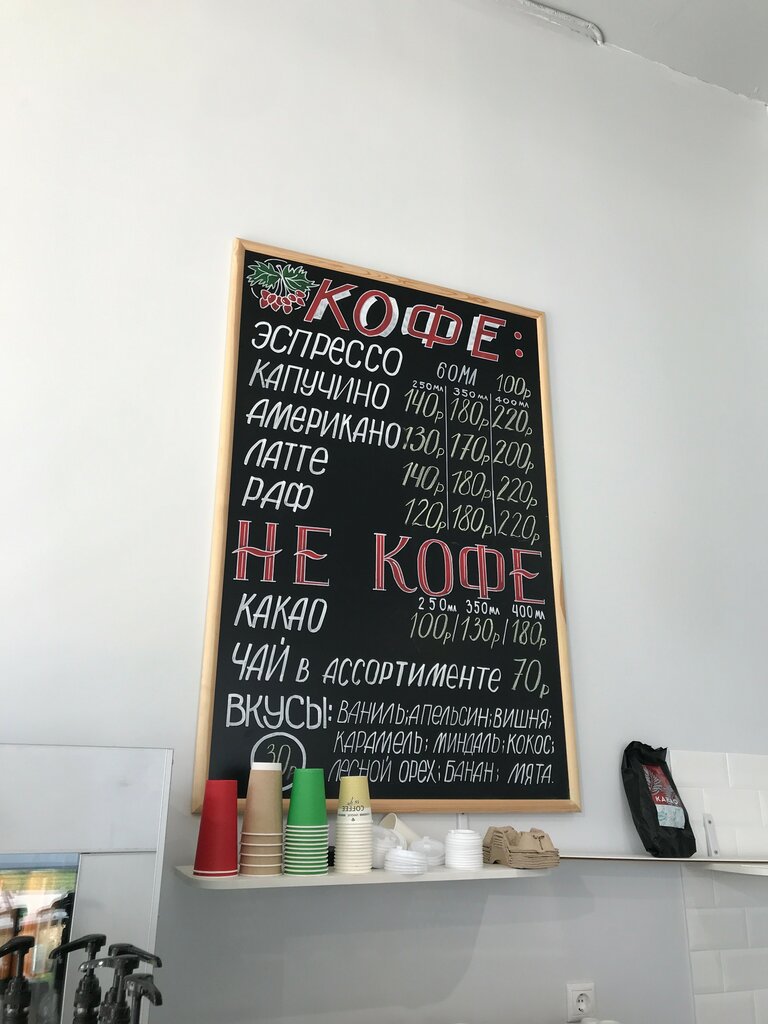 КОФЕ:
ЭСПРЕССО 60МЛ 100р
250МЛ 350МЛ 400МЛ
КАПУЧИНО 140р 180р 220р
АМЕРИКАНО 130р 170р 200р
ЛАТТЕ 140р 180р 220р
РАФ 120р 180р 220р
НЕ КОФЕ
250МЛ 350МЛ 400МЛ
КАКАО 100р/130р/180р
ЧАЙ В АССОРТИМЕНТЕ 70р
ВКУСЫ: ВАНИЛЬ; АПЕЛЬСИН; ВИШНЯ;
КАРАМЕЛЬ; МИНДАЛЬ; КОКОС;
30р ЛЕСНОЙ ОРЕХ; БАНАН; МЯТА.
COFFEE
КАКАО